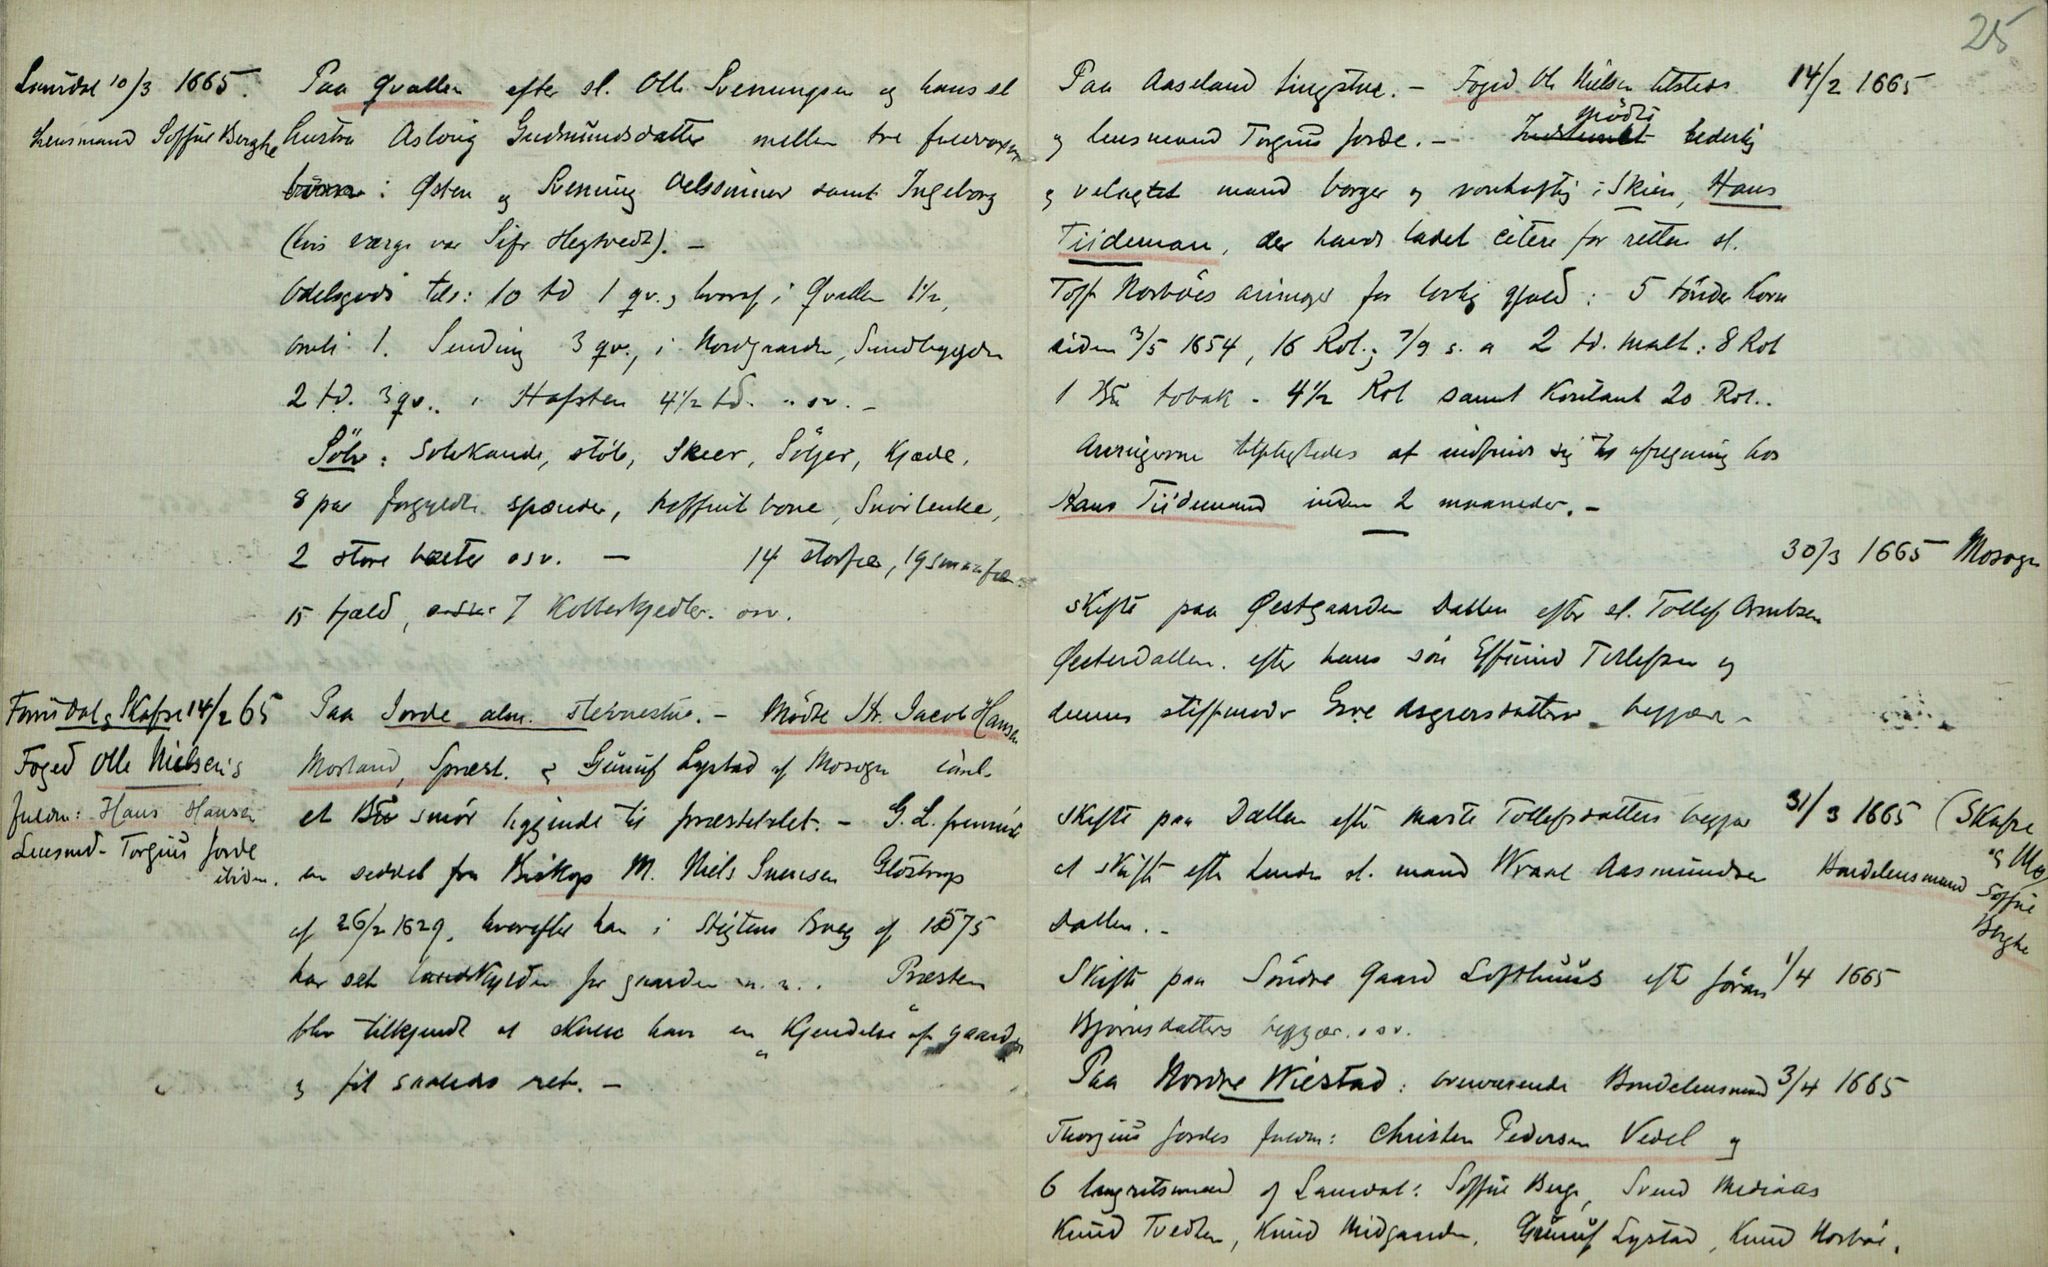 Laurdal 10/3 1665.
Lensmand Soffue Berghe
Paa Qvallen efter sl. Olle Svenungsen og hans sl
hustru Asloug Gudmundsdatter mellem tre
børn: Østen og Svenung Oelssønner samt Ingeborg
(hvis verge var Sifr Hegtvedt). –
Odelsgods tils: 10 td 1 qv., hvoraf i Qvallen 1½,
1. Sending 3 qv., i Nordgaarden, Sundbygden
2 td. 3 qv.. i Hafsten 4½ td. osv. –
Sölv: Sölvkande, stöb, Skeer, Söljer, Kjæde,
8 par forgyldte spænder, Snörlenke,
2 store belter osv. – 14 storfæ, 19 smaafæ
15 fjæld, 7 Kobberkjedler. osv.
Fyrisdal, Skafse 14/2 65
Foged Olle Nielsens
fuldm: Hans Hansen
Lensmd. Torgius Jorde
ibidm.
Paa Jorde alm. stevnestue. – Mödte Hr. Jacob Hansen
Morland, Spræst. og Gunuf Lystad af Mosogn
et Bu smör liggende til præstebolet. – G. L.
en seddel fra Biskop M. Niels Simensen Glostrup
af 26/2 1629, hvorefter han i Stigtens Bog af 1575
har set landskylden for gaarden m. m.. Præsten
blev tilkjendt at skulle have en "Kjendelse" af gaarden
og fik saaledes ret. –
25
Paa Aaseland tingstue. – Foged Ole Nielsen tilstede 14/2 1665
og lensmand Torgius Jorde. – mödte hederlig
og velagtet mand borger og vonhaftig i Skien, Hans
Tiideman, der havde ladet citere for retten sl.
Toff Norböes arvinger for lovlig gjeld: 5 tönder korn
siden 3/5 1654, 16 Rdl. og 7/9 s. a 2 td. malt: 8 Rdl
1 Bu tobak – 4½ Rdl samt Kontant 20 Rdl..
Arvingerne tilpligtedes at indfinde sig til afregning hos
Hans Tiidemand inden 2 maaneder. –
30/3 1665 Mosogn
Skifte paa Østgaarden Dallen efter sl. Tollef Arntzen
Østerdallen. efter hans sön Effuind Tollefsen og
dennes stiffmoder Groe Asgrersdatters begjær –
Skifte paa Dallen efter Marte Tollefsdatters begjær 31/3 1665 (Skafse
og Mo)
at skifte efter hendes sl. mand Wraal Aasmundsen Bondelensmand Soffue
Berghe
Dallen. –
Skifte paa Söndre Gaard Lofthuus efter Jöran 1/4 1665
Björnsdatters begjær. osv.
Paa Nordre Wiestad: overværende Bondelensmand 3/4 1665
Thorgius Jordes fuldm: Christen Pedersen Vedel og
6 laugretsmænd af Laurdal: Soffue Berge, Svend Mediaas
Knud Tvedten, Knud Midgarden, Gunuf Lystad, Knud Norböe,